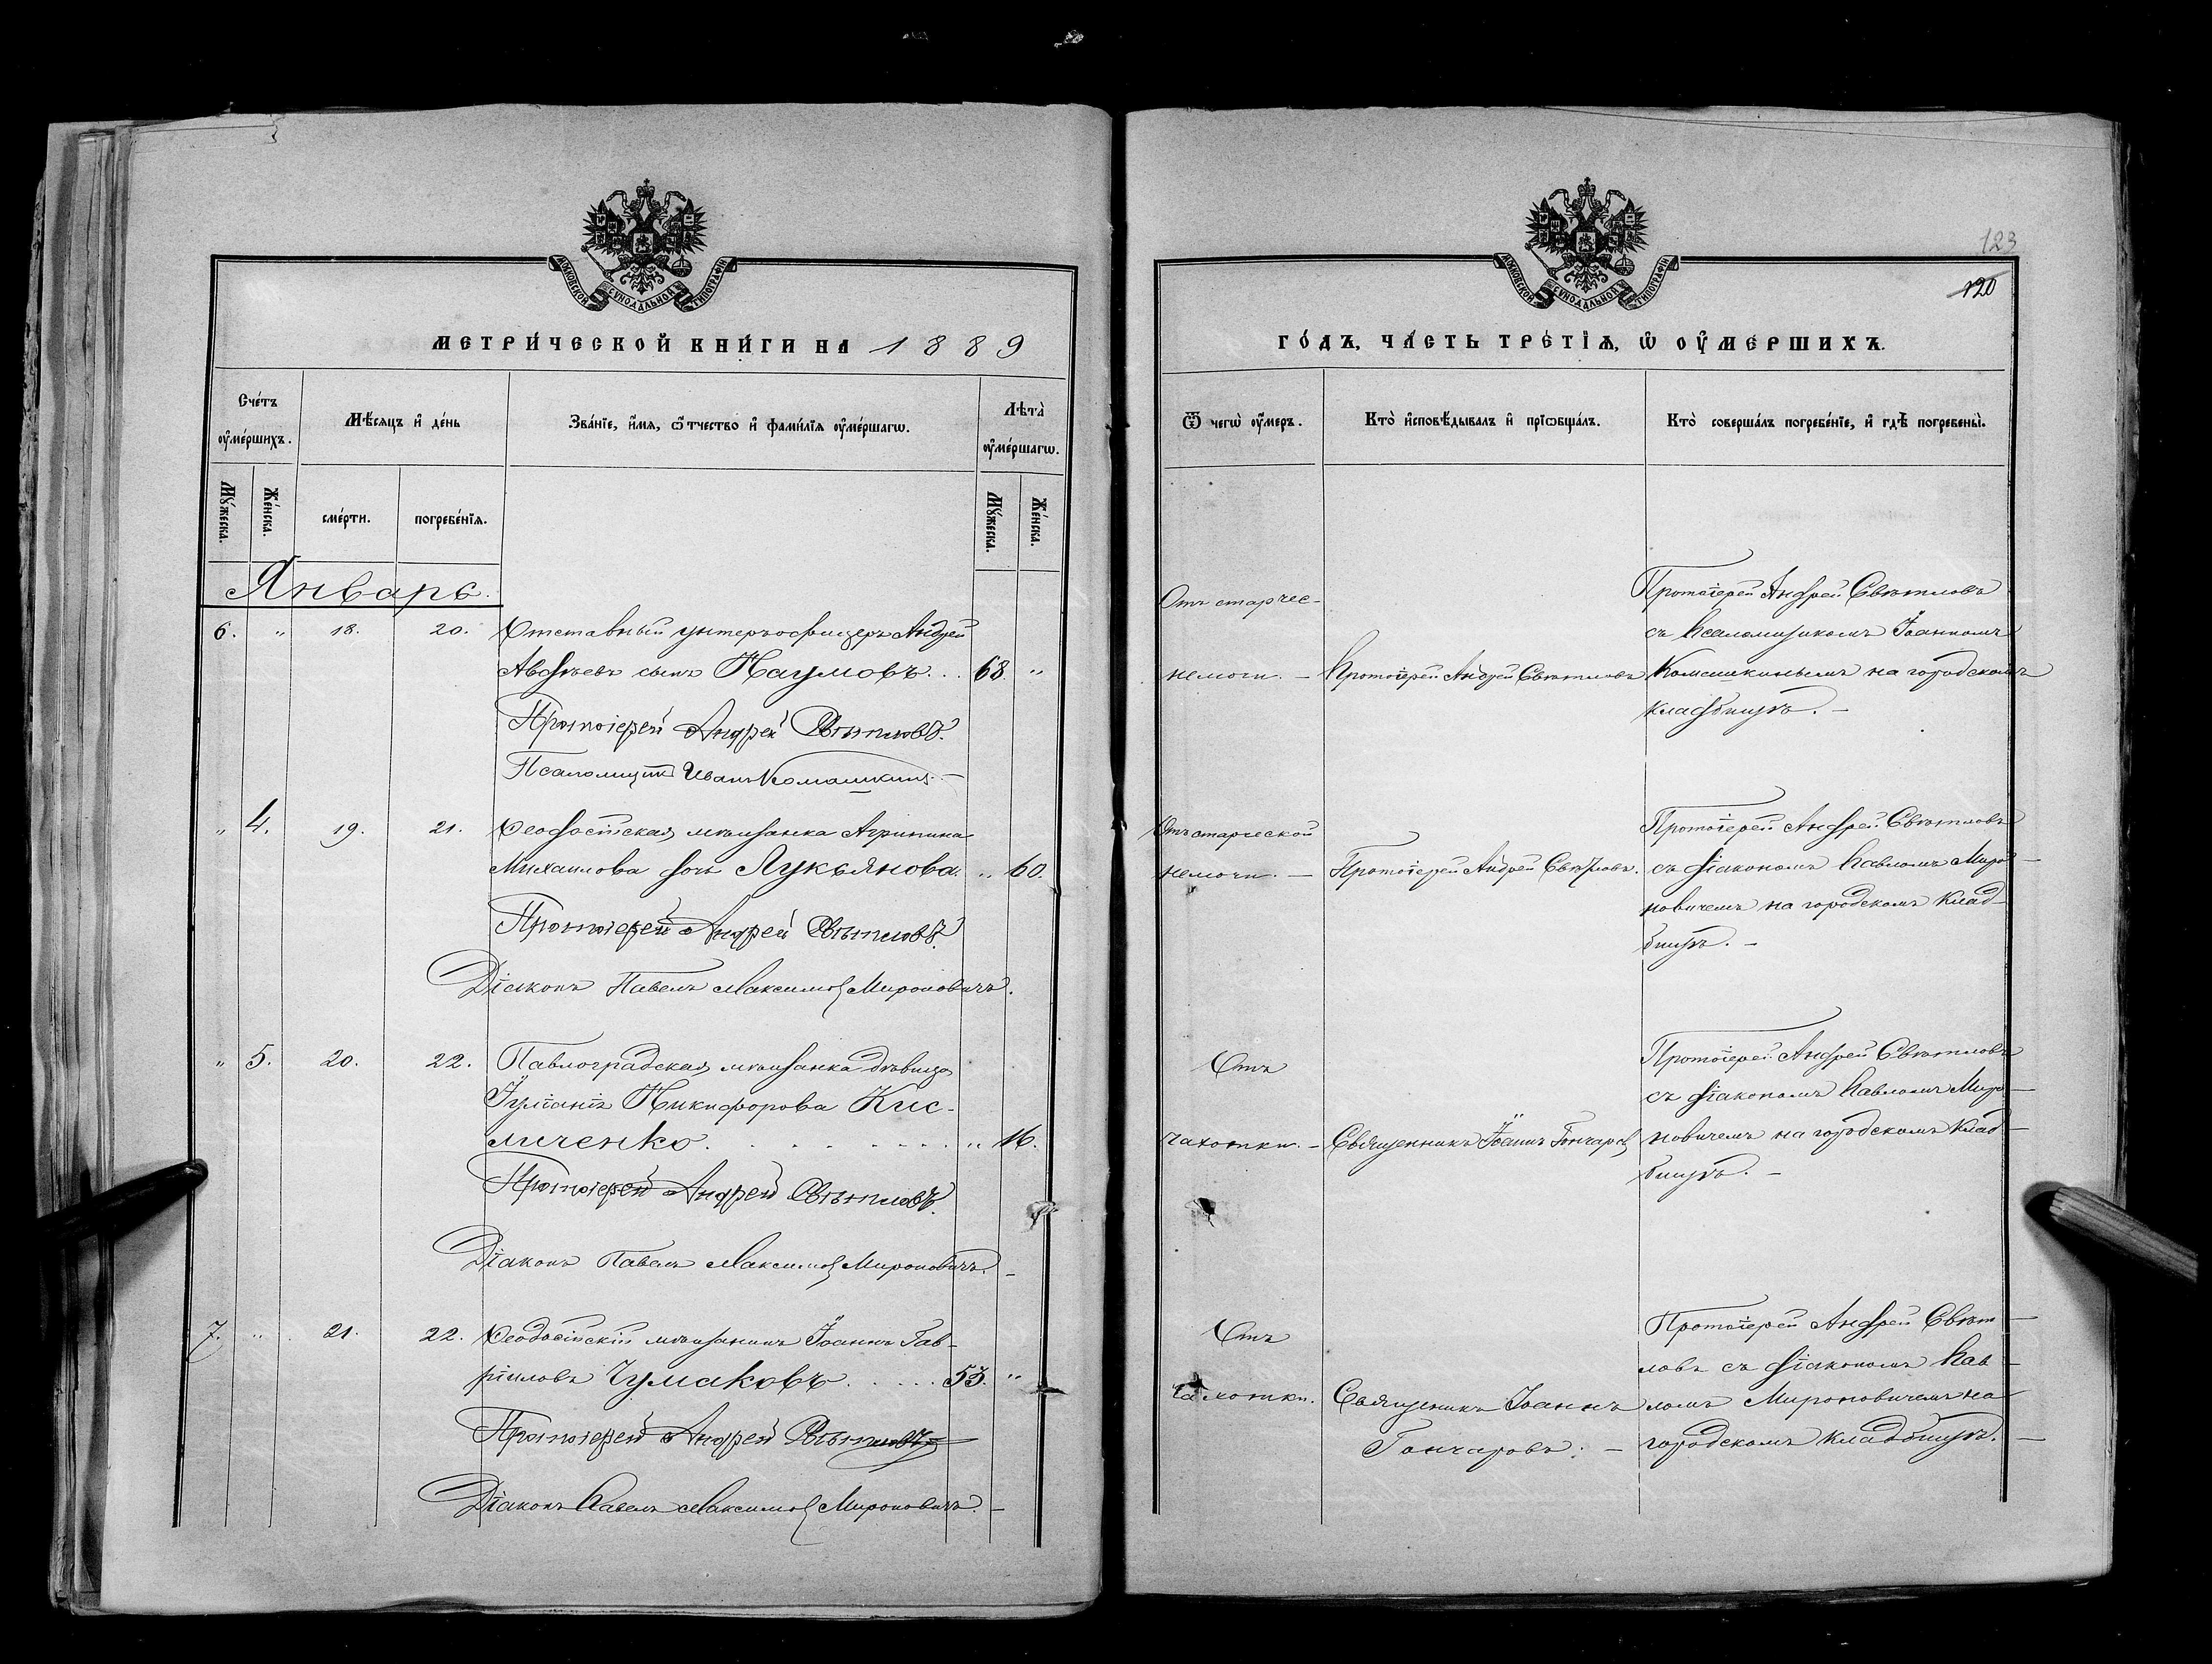 МОСКОВСКОЙ СУНОДАЛЬНОЙ ТИПОГРАФІИ
МЕТРИ́ЧЕСКОЙ КНИ́ГИ НА 1889
Сче́тъ оу҆ме́ршихъ.
Мѣ́сяцъ и҆ де́нь
Зва́нїе, и҆́мя, ѻ҆́тчество и҆ фами́лїя оу҆ме́ршагѡ.
Лѣта̀ оу҆ме́ршагѡ.
Мꙋ́жеска.
Же́нска.
сме́рти.
погребе́нїѧ.
Мꙋ́жеска.
Же́нска.
Январь.
6. " 18. 20. Отставный унтеръ офицеръ Андрей
Авдѣевъ сынъ Наумовъ... 68 "
Протоіерей Андрей Свѣтловъ.
Псаломщикъ Иванъ Комашкинъ. —
" 4. 19. 21. Ѳеодосійская мѣщанка Агрипина
Михаилова дочь Лукьянова. " 60.
Протоіерей Андрей Свѣтловъ
Діаконъ Павелъ Максимов Мироновичъ.
" 5. 20. 22. Павлоградская мѣщанка дѣвица
Іуліанія Никифорова Кис-
личенко. . . . . . . " 16.
Протоіерей Андрей Свѣтловъ.
Діаконъ Павелъ Максимов Мироновичъ. —
7. " 21. 22. Ѳеодосійскій мѣщанинъ Іоаннъ Гав-
ріиловъ Чумаковъ . . . . . 53. "
Протоіерей Андрей Свѣтловъ
Діаконъ Павелъ Максимов Мироновичъ. —
МОСКОВСКОЙ СУНОДАЛЬНОЙ ТИПОГРАФІИ
123
120
ГО́ДЪ, ЧА́СТЬ ТРЕ́ТЇѦ, Ѡ҆ ОУ҆МЕ́РШИХЪ.
Ѿ чегѡ̀ оу҆́меръ.
Кто̀ и҆сповѣ́дывалъ и҆ прїѡбща́лъ.
Кто̀ соверша́лъ погребе́нїе, и҆ гдѣ̀ погребены̀.
Отъ старчес-
немочи. —
Протоіерей Андрей Свѣтловъ
Протоіерей Андрей Свѣтловъ
съ псаломщикомъ Іоанномъ
Комашкинымъ на городскомъ
кладбищѣ. —
Отъ старческой
немочи. —
Протоіерей Андрей Свѣтловъ.
Протоіерей Андрей Свѣтловъ
съ діакономъ Павломъ Миро-
новичемъ на городскомъ клад-
бищѣ. —
Отъ
чахотки. —
Священникъ Іоаннъ Гончаров
Протоіерей Андрей Свѣтловъ
съ діакономъ Павломъ Миро-
новичемъ на городскомъ клад-
бищѣ. —
Отъ
чахотки.
Священникъ Іоаннъ
Гончаровъ. —
Протоіерей Андрей Свѣт-
ловъ съ діакономъ Пав-
ломъ Мироновичемъ на
городскомъ кладбищѣ. —